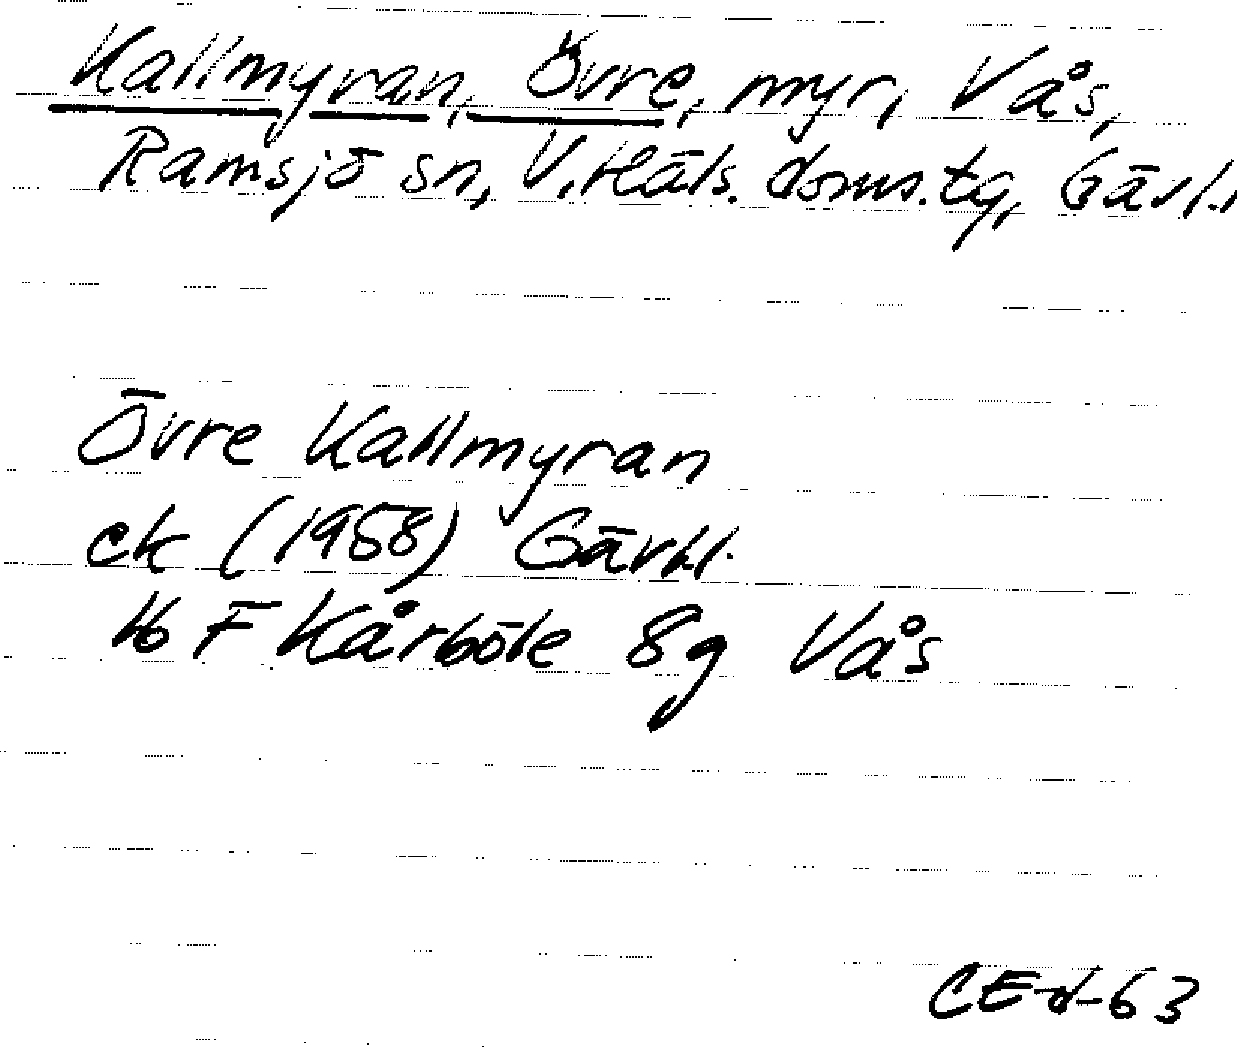 Kallmyran, Övre, myr, Vås,
Ramsjö sn, V. Häls. doms.tg, Gävl.
Övre Kallmyran
ek (1958) Gävl.
16 F Kårböle 8g Vås
CEd-63